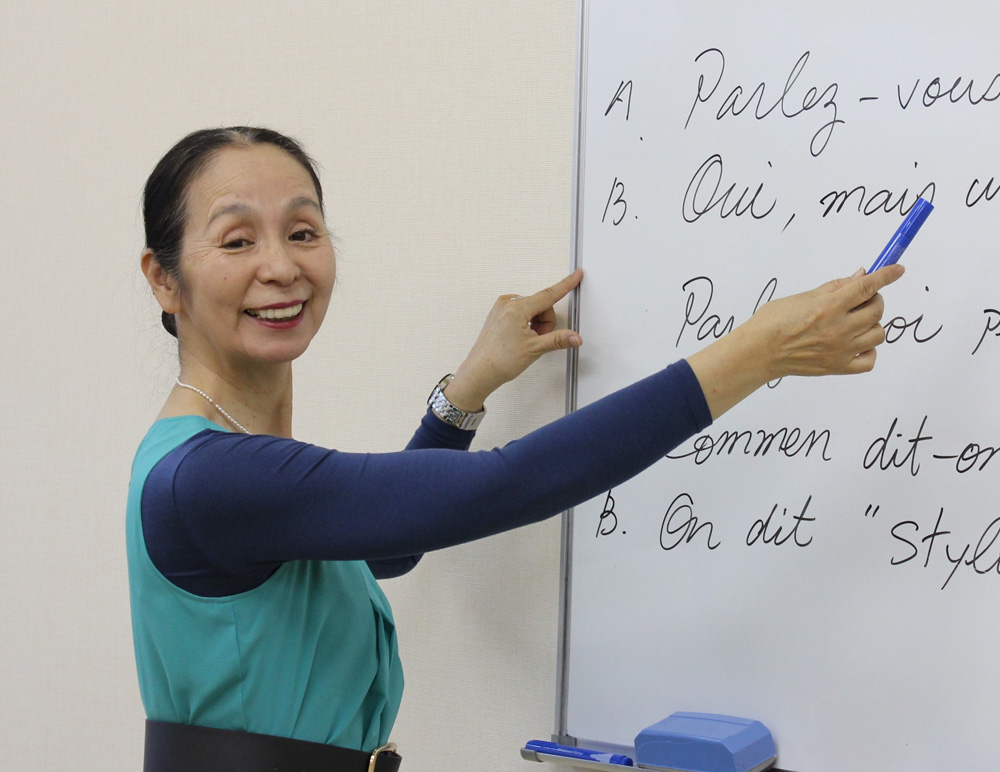 A Parlez-vous
B. Oui, mais
Commen dit-on
B. On dit "Styl